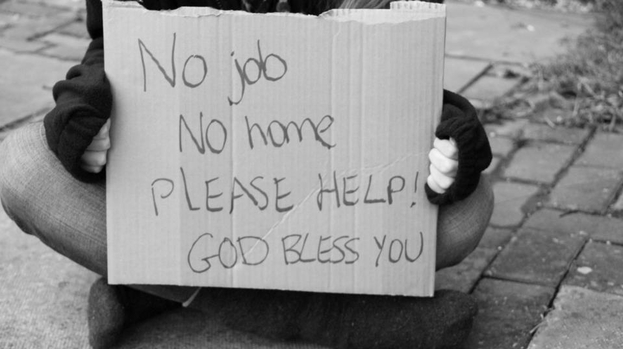 No job
No home
PLEASE HELP!
GOD BLESS YOU